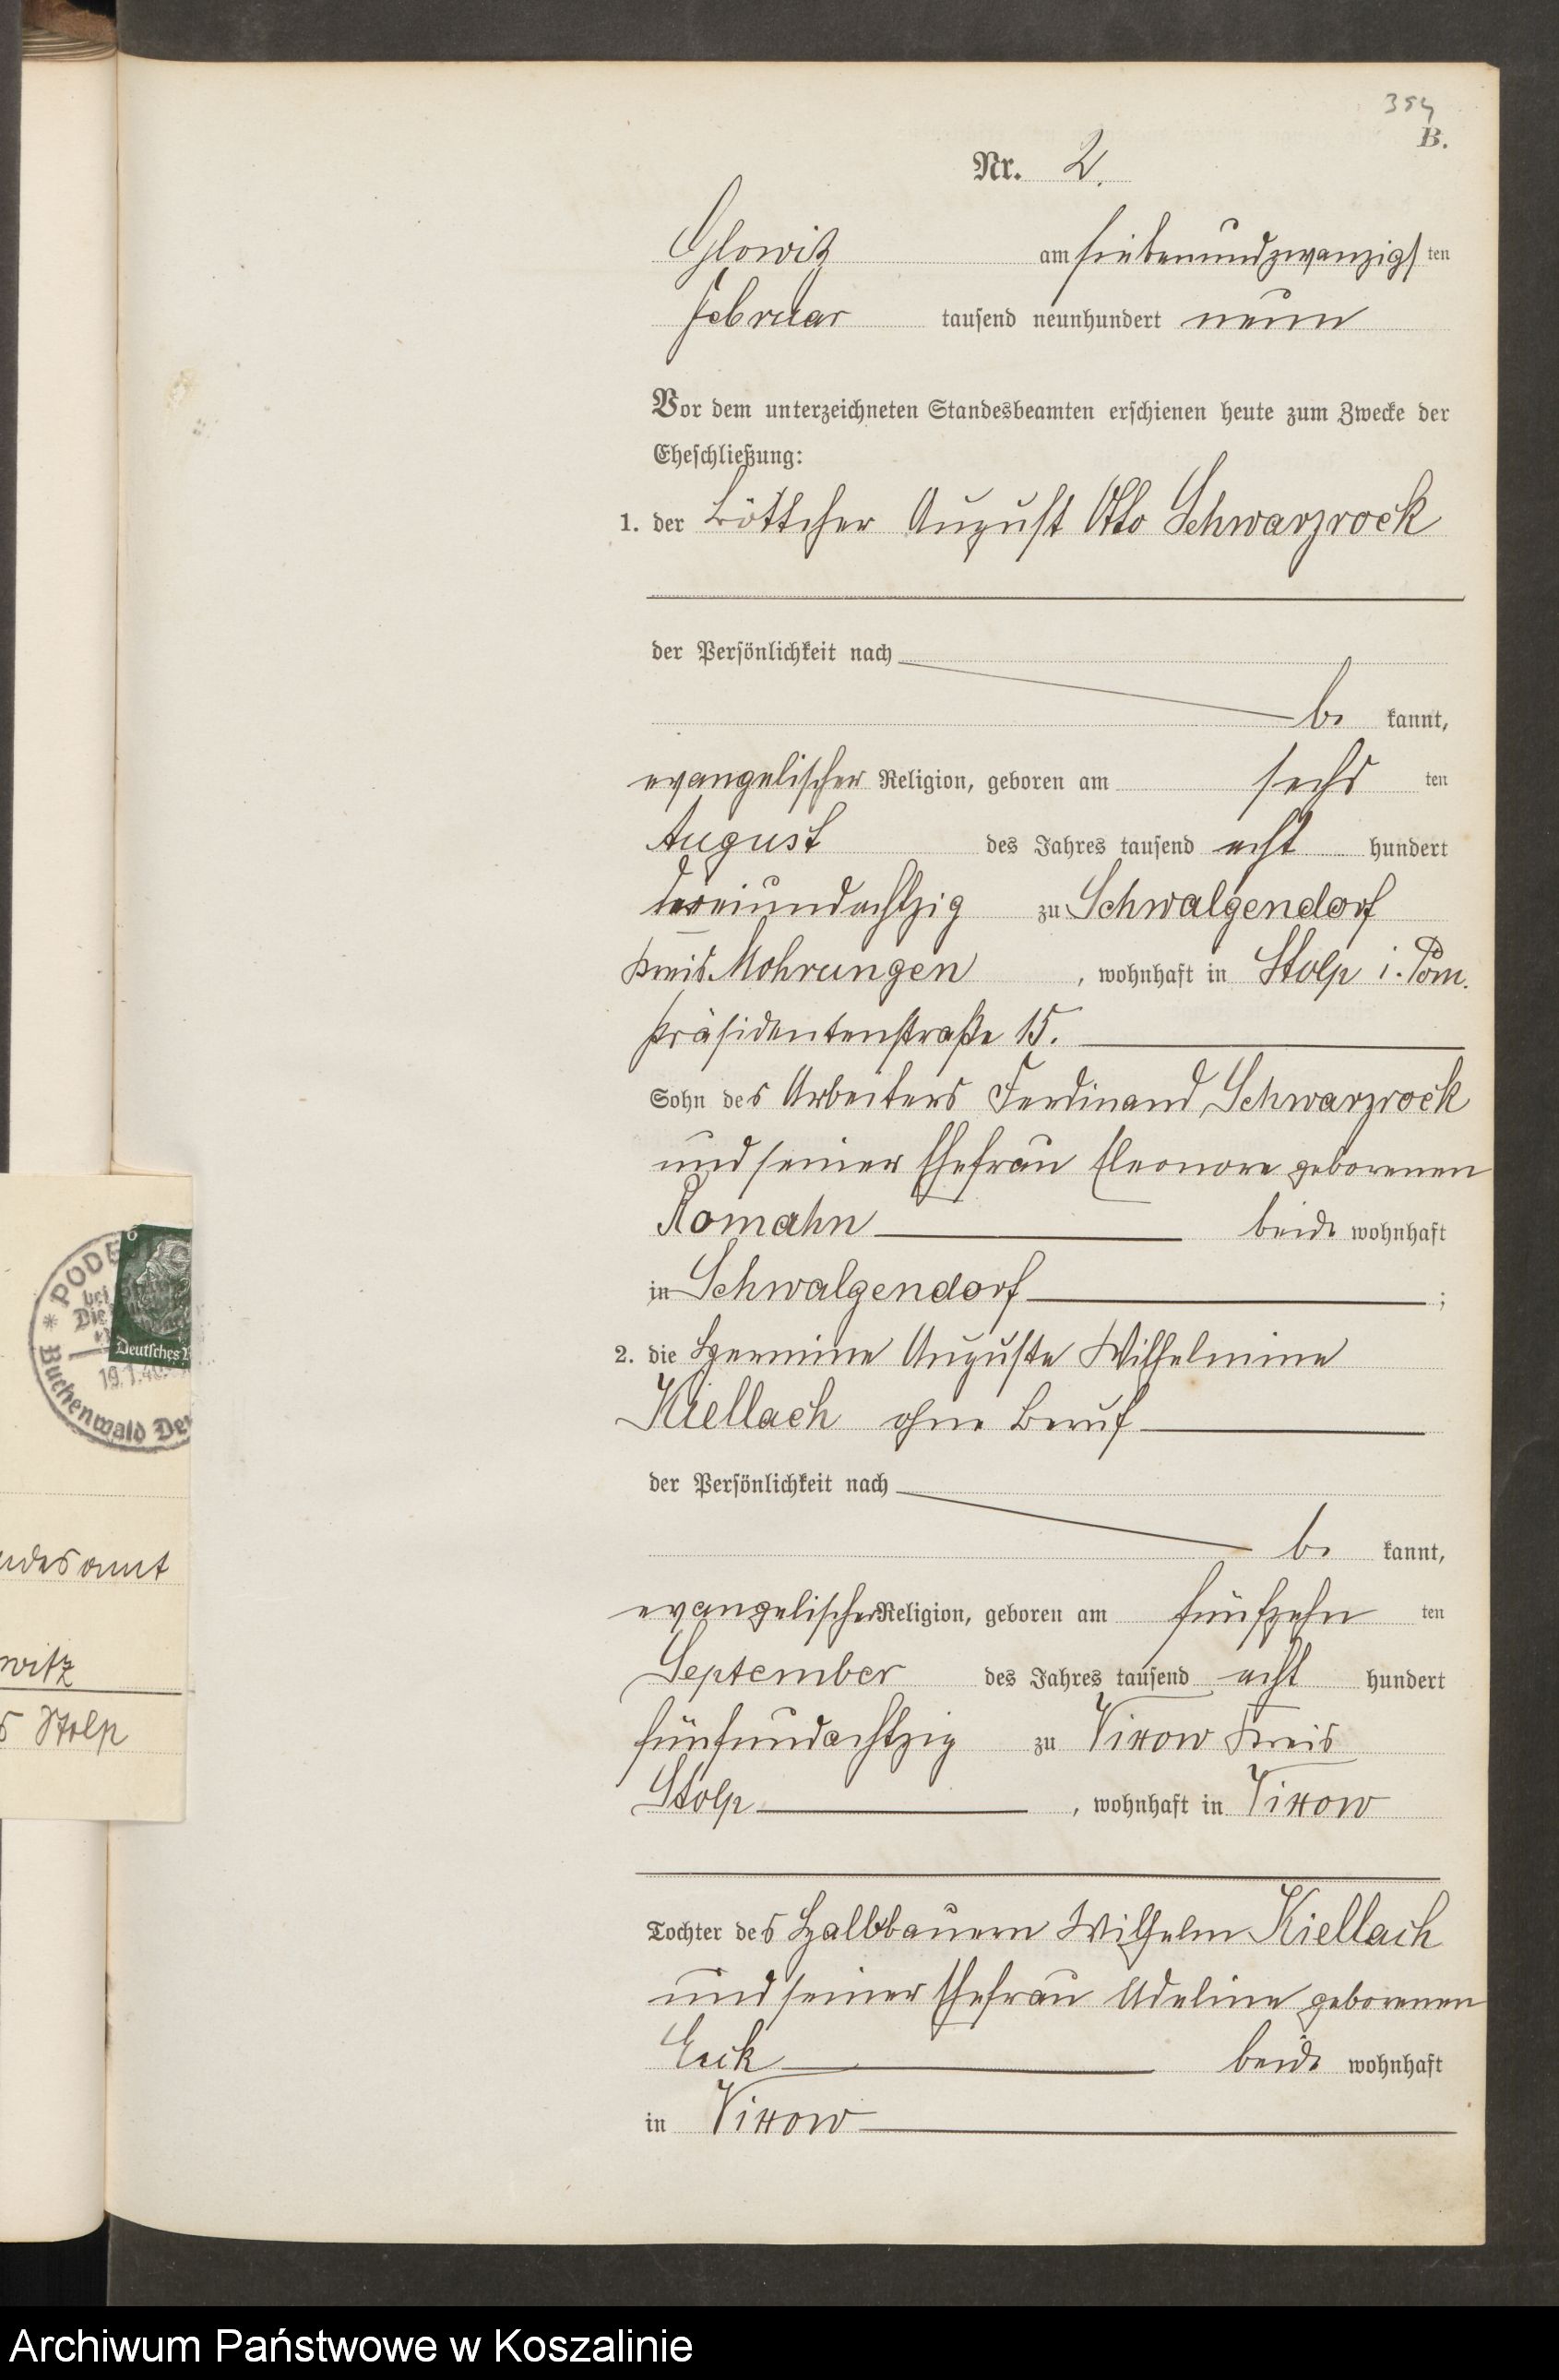 B.
Nr. 2.
Glowitz am siebenundzwanzigsten
Februar tausend neunhundert neun
Vor dem unterzeichneten Standesbeamten erschienen heute zum Zwecke der
Eheschließung:
1. der Böttcher August Otto Schwarzrock
der Persönlichkeit nach
be kannt,
evangelischer Religion, geboren am sechs ten
August des Jahres tausend acht hundert
dreiundachtzig zu Schwalgendorf
Kreis Mohrungen, wohnhaft in Stolp i. Pom.
Präsidentenstraße 15.
Sohn des Arbeiters Ferdinand Schwarzrock
und seiner Ehefrau Eleonore geborenen
Romahn beide wohnhaft
in Schwalgendorf;
2. die Hermine Auguste Wilhelmine
Kiellach ohne Beruf
der Persönlichkeit nach
be kannt,
evangelischer Religion, geboren am fünfzehn ten
September des Jahres tausend acht hundert
fünfundachtzig zu Vixow Kreis
Stolp, wohnhaft in Vixow
Tochter des Halbbauern Wilhelm Kiellach
und seiner Ehefrau Adeline geborenen
beide wohnhaft
in Vixow
* PODE
bei
Die
Deutsches R
19.1.40
Buchenwald Der
ndesamt
witz
s Stolp
Archiwum Państwowe w Koszalinie